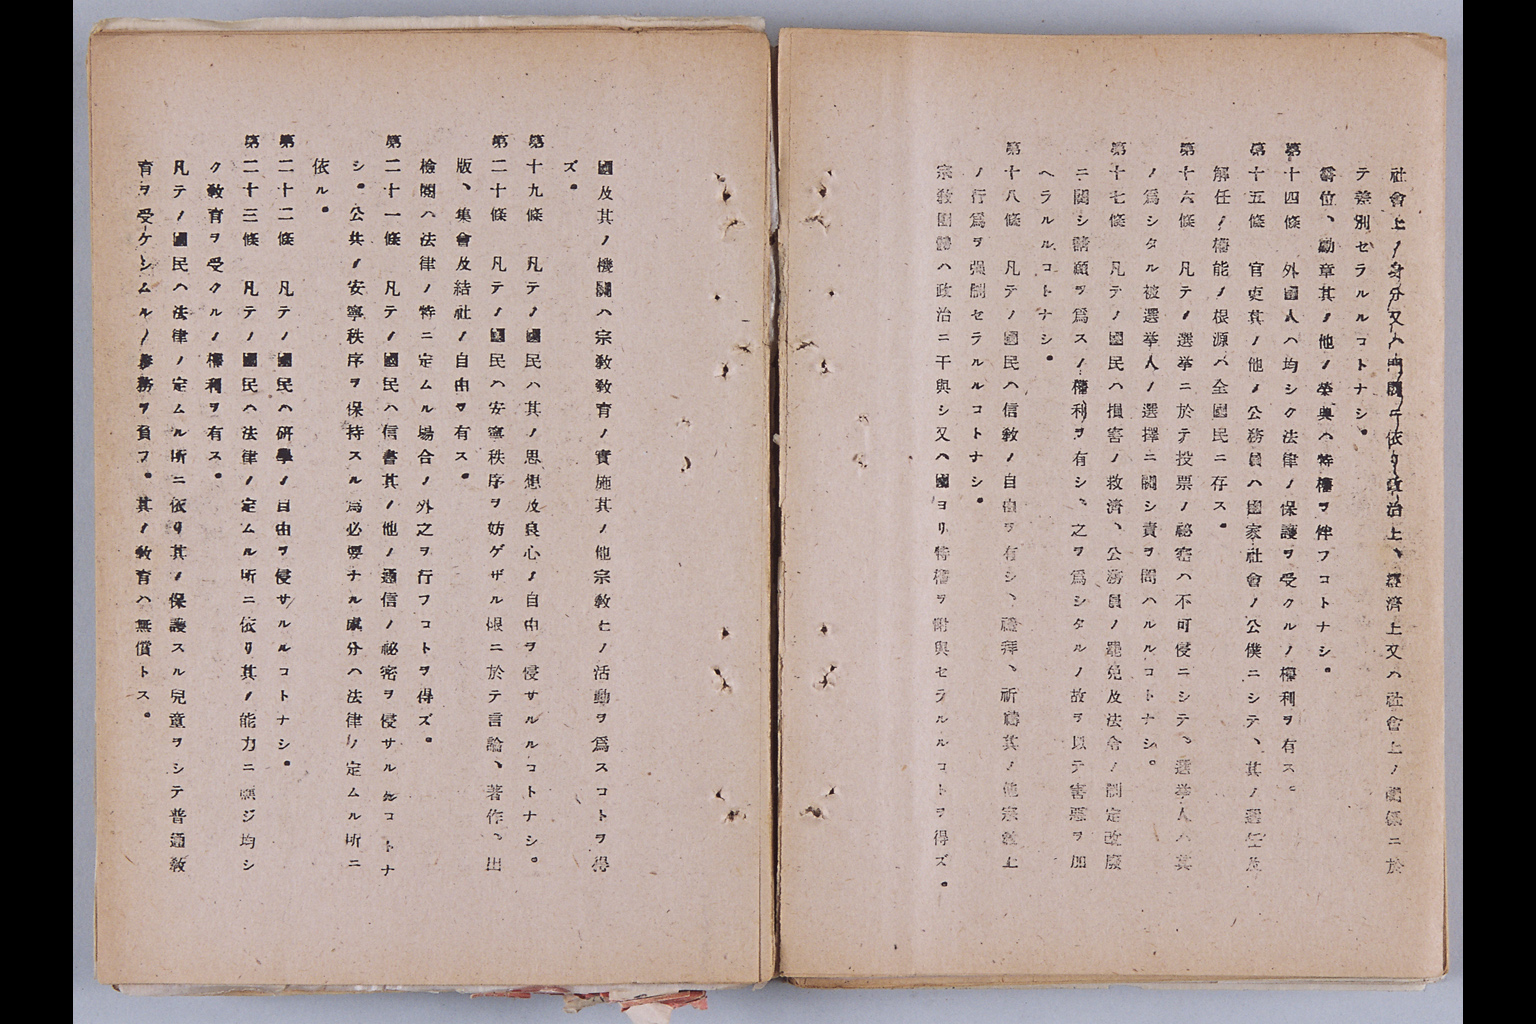 社會上ノ身分又ハ門閥ニ依リ政治上、經濟上又ハ社會上ノ關係ニ於
テ差別セラルルコトナシ。
爵位、勳章其ノ他ノ榮典ハ特權ヲ伴フコトナシ。
第十四條 外國人ハ均シク法律ノ保護ヲ受クルノ權利ヲ有ス。
第十五條 官吏其ノ他ノ公務員ハ國家社會ノ公僕ニシテ、其ノ選任及
解任ノ權能ノ根源ハ全國民ニ存ス。
第十六條 凡テノ選擧ニ於テ投票ノ祕密ハ不可侵ニシテ、選擧人ハ其
ノ爲シタル被選擧人ノ選擇ニ關シ責ヲ問ハルルコトナシ。
第十七條 凡テノ國民ハ損害ノ救濟、公務員ノ罷免及法令ノ制定改廢
ニ關シ請願ヲ爲スノ權利ヲ有シ、之ヲ爲シタルノ故ヲ以テ害惡ヲ加
ヘラルルコトナシ。
第十八條 凡テノ國民ハ信敎ノ自由ヲ有シ、禮拜、祈禱其ノ他宗敎上
ノ行爲ヲ强制セラルルコトナシ。
宗敎團體ハ政治ニ干與シ又ハ國ヨリ特權ヲ附與セラルルコトヲ得ズ。
國及其ノ機關ハ宗敎敎育ノ實施其ノ他宗敎上ノ活動ヲ爲スコトヲ得
ズ。
第十九條 凡テノ國民ハ其ノ思想及良心ノ自由ヲ侵サルルコトナシ。
第二十條 凡テノ國民ハ安寧秩序ヲ妨ゲザル限ニ於テ言論、著作、出
版、集會及結社ノ自由ヲ有ス。
檢閱ハ法律ノ特ニ定ムル場合ノ外之ヲ行フコトヲ得ズ。
第二十一條 凡テノ國民ハ信書其ノ他ノ通信ノ祕密ヲ侵サルルコトナ
シ。公共ノ安寧秩序ヲ保持スル爲必要ナル處分ハ法律ノ定ムル所ニ
依ル。
第二十二條 凡テノ國民ハ硏學ノ自由ヲ侵サルルコトナシ。
第二十三條 凡テノ國民ハ法律ノ定ムル所ニ依リ其ノ能力ニ應ジ均シ
ク敎育ヲ受クルノ權利ヲ有ス。
凡テノ國民ハ法律ノ定ムル所ニ依リ其ノ保護スル兒童ヲシテ普通敎
育ヲ受ケシムルノ義務ヲ負フ。其ノ敎育ハ無償トス。